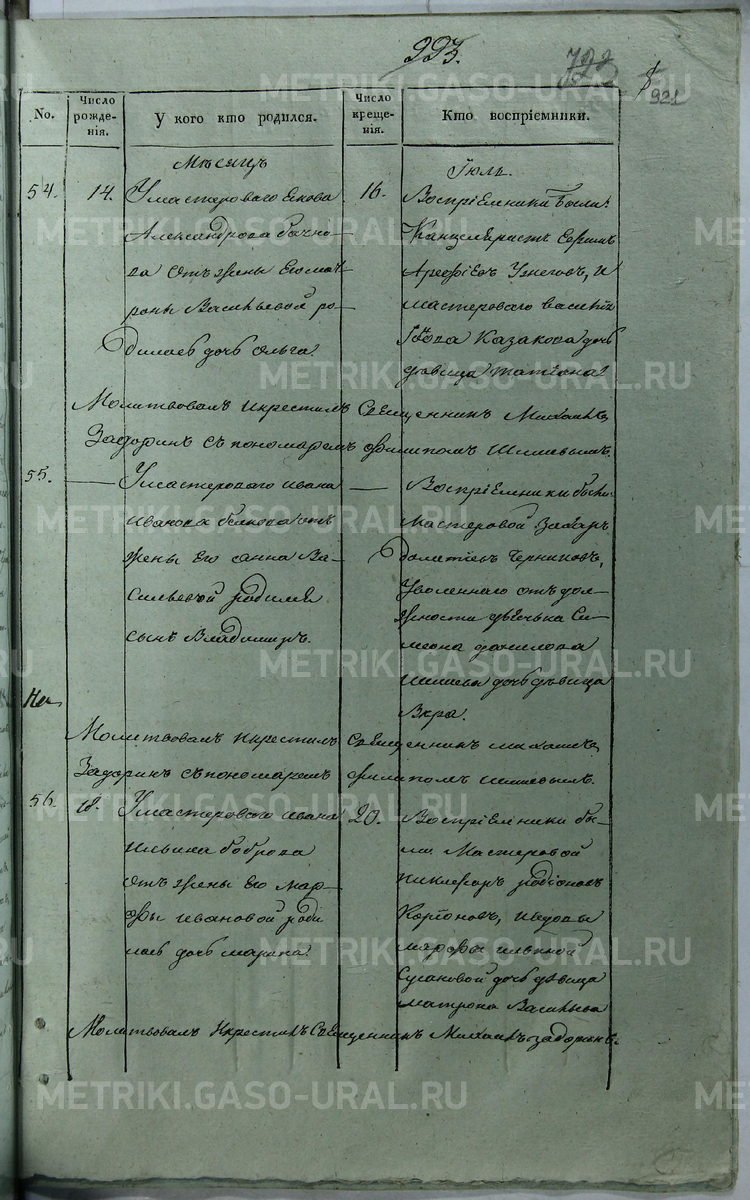 223.
921
No.
Число рожденія.
У кого кто родился.
Число крещенія.
Кто воспріемники.
Мѣсяцъ
Іюль.
54.
14.
У мастероваго
Александрова
ва отъ жены его мат
роны Васильевой ро
дилась дочь Ольга.
16.
Воспріемники были:
Канцеляристъ
и
мастероваго Василія
Казакова дочь
дѣвица Татіана
Молитвовалъ и крестилъ Священникъ Михаилъ
Задоринъ съ пономаремъ Филипомъ Шишевымъ.
55.
У мастероваго Ивана
Иванова отъ
жены его Анна Ва
сильевой родился
сынъ Владимиръ.
Воспріемники были
Мастеровой Захаръ
Черниковъ,
Уволеннаго отъ дол
жности дьячька Си
меона Данилова
Шишева дочь дѣвица
Вѣра.
Молитвовалъ и крестилъ Священникъ Михаилъ
Задоринъ съ пономаремъ Филипомъ Шишевымъ.
56.
18.
У мастероваго Ивана
Ильина Боброва
отъ жены его Мар
фы Ивановой роди
лась дочь Марина
20.
Воспріемники бы
ли Мастеровой
Никифоръ Родіоновъ
и вдовы
Марфы Ильиной
Сусановой дочь дѣвица
Матрона Васильева
Молитвовалъ и крестилъ Священникъ Михаилъ Задоринъ.
METRIKI.GASO-URAL.RU